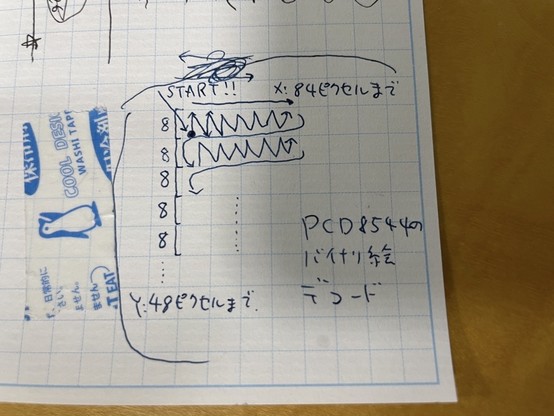 START!!
X:84ピクセルまで
8
8
8
8
8
Y:48ピクセルまで
PCD8544の
バイナリ絵
デコード
COOL DESK
WASHI TAPE
日常的に
さい。
ません。
T EAT